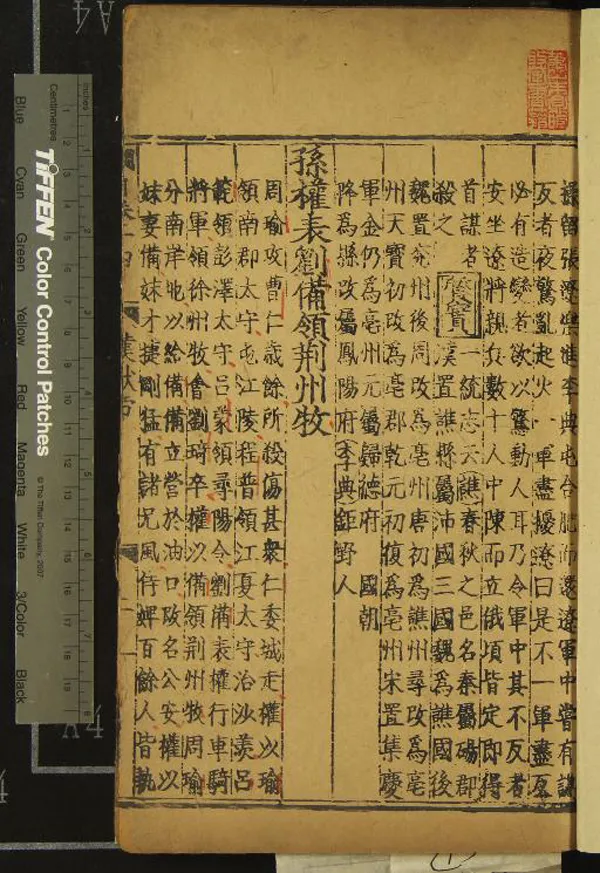 操留張遼樂進李典屯合肥而還遼軍中嘗有謀
反者夜驚亂起火一軍盡擾遼曰是不一軍盡反
必有造變者欲以驚動人耳乃令軍中其不反者
安坐遼將親兵數十人中陳而立俄頃皆定即得
首謀者
殺之 質實 一統志云譙春秋之邑名秦屬碭郡
漢置譙縣屬沛國三國魏為譙國後
魏置兗州後周改為亳州唐初為譙州尋改為亳
州天寶初改為亳郡乾元初復為亳州宋置集慶
軍金仍為亳州元屬歸德府 國朝
降為縣改屬鳳陽府李典鉅野人
孫權表劉備領荊州牧
周瑜攻曹仁歲餘所殺傷甚衆仁委城走權以瑜
領南郡太守屯江陵程普領江夏太守治沙羨呂
範領彭澤太守呂蒙領尋陽令劉備表權行車騎
將軍領徐州牧會劉琦卒權以備領荊州牧周瑜
分南岸地以給備備立營於油口改名公安權以
妹妻備妹才捷剛猛有諸兄風侍婢百餘人皆執
漢獻帝
Inches
Centimetres
TIFFEN Color Control Patches
© The Tiffen Company, 2007
Blue Cyan Green Yellow Red Magenta White 3/Color Black
A4